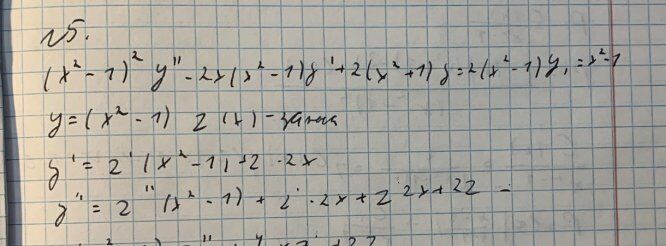 N5.
(x² - 1)² y'' - 2x(x² - 1)y' + 2(x² + 1)y = 2(x² - 1) y₁ = x² - 1
y = (x² - 1) z(x) - замена
y' = z'(x² - 1) + z · 2x
y'' = z''(x² - 1) + z' · 2x + z' 2x + 2z =